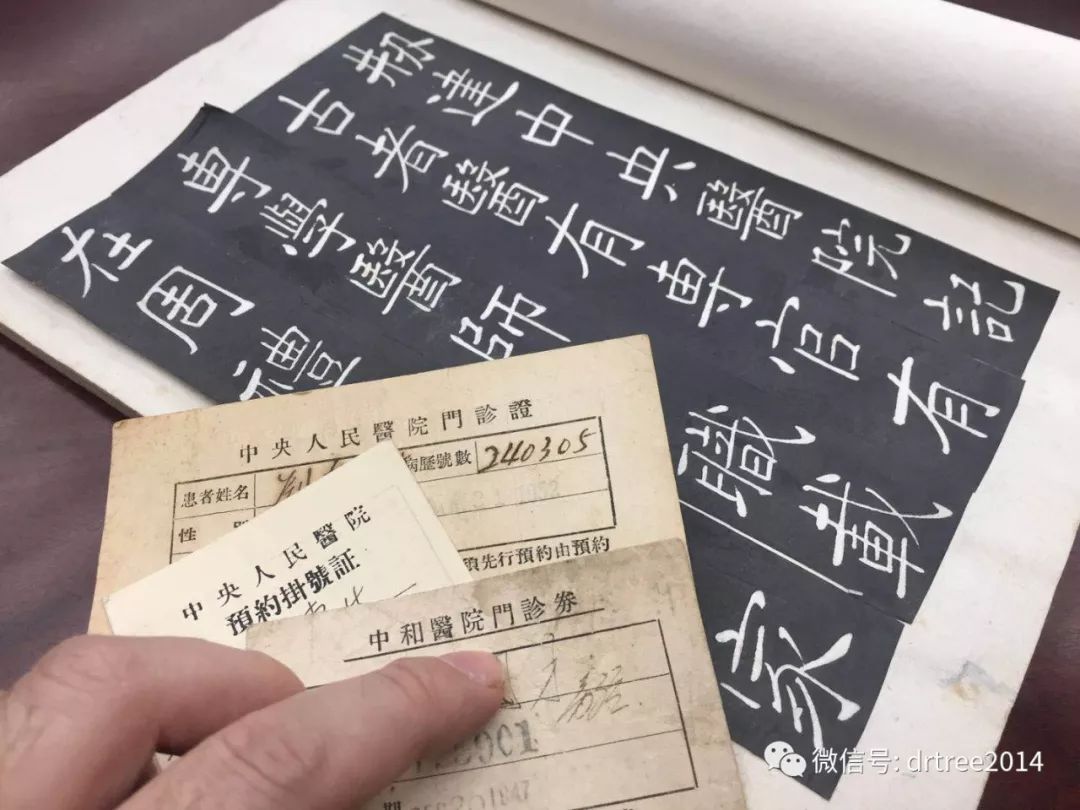 刱建中央醫院記
古者醫有專官有
專學醫師職載
在周禮家
中央人民醫院門診證
患者姓名 病歷號數 240305
性
先行預約由預約
中央人民醫院
預約掛號証
中和醫院門診券
期 1947
微信号: drtree2014